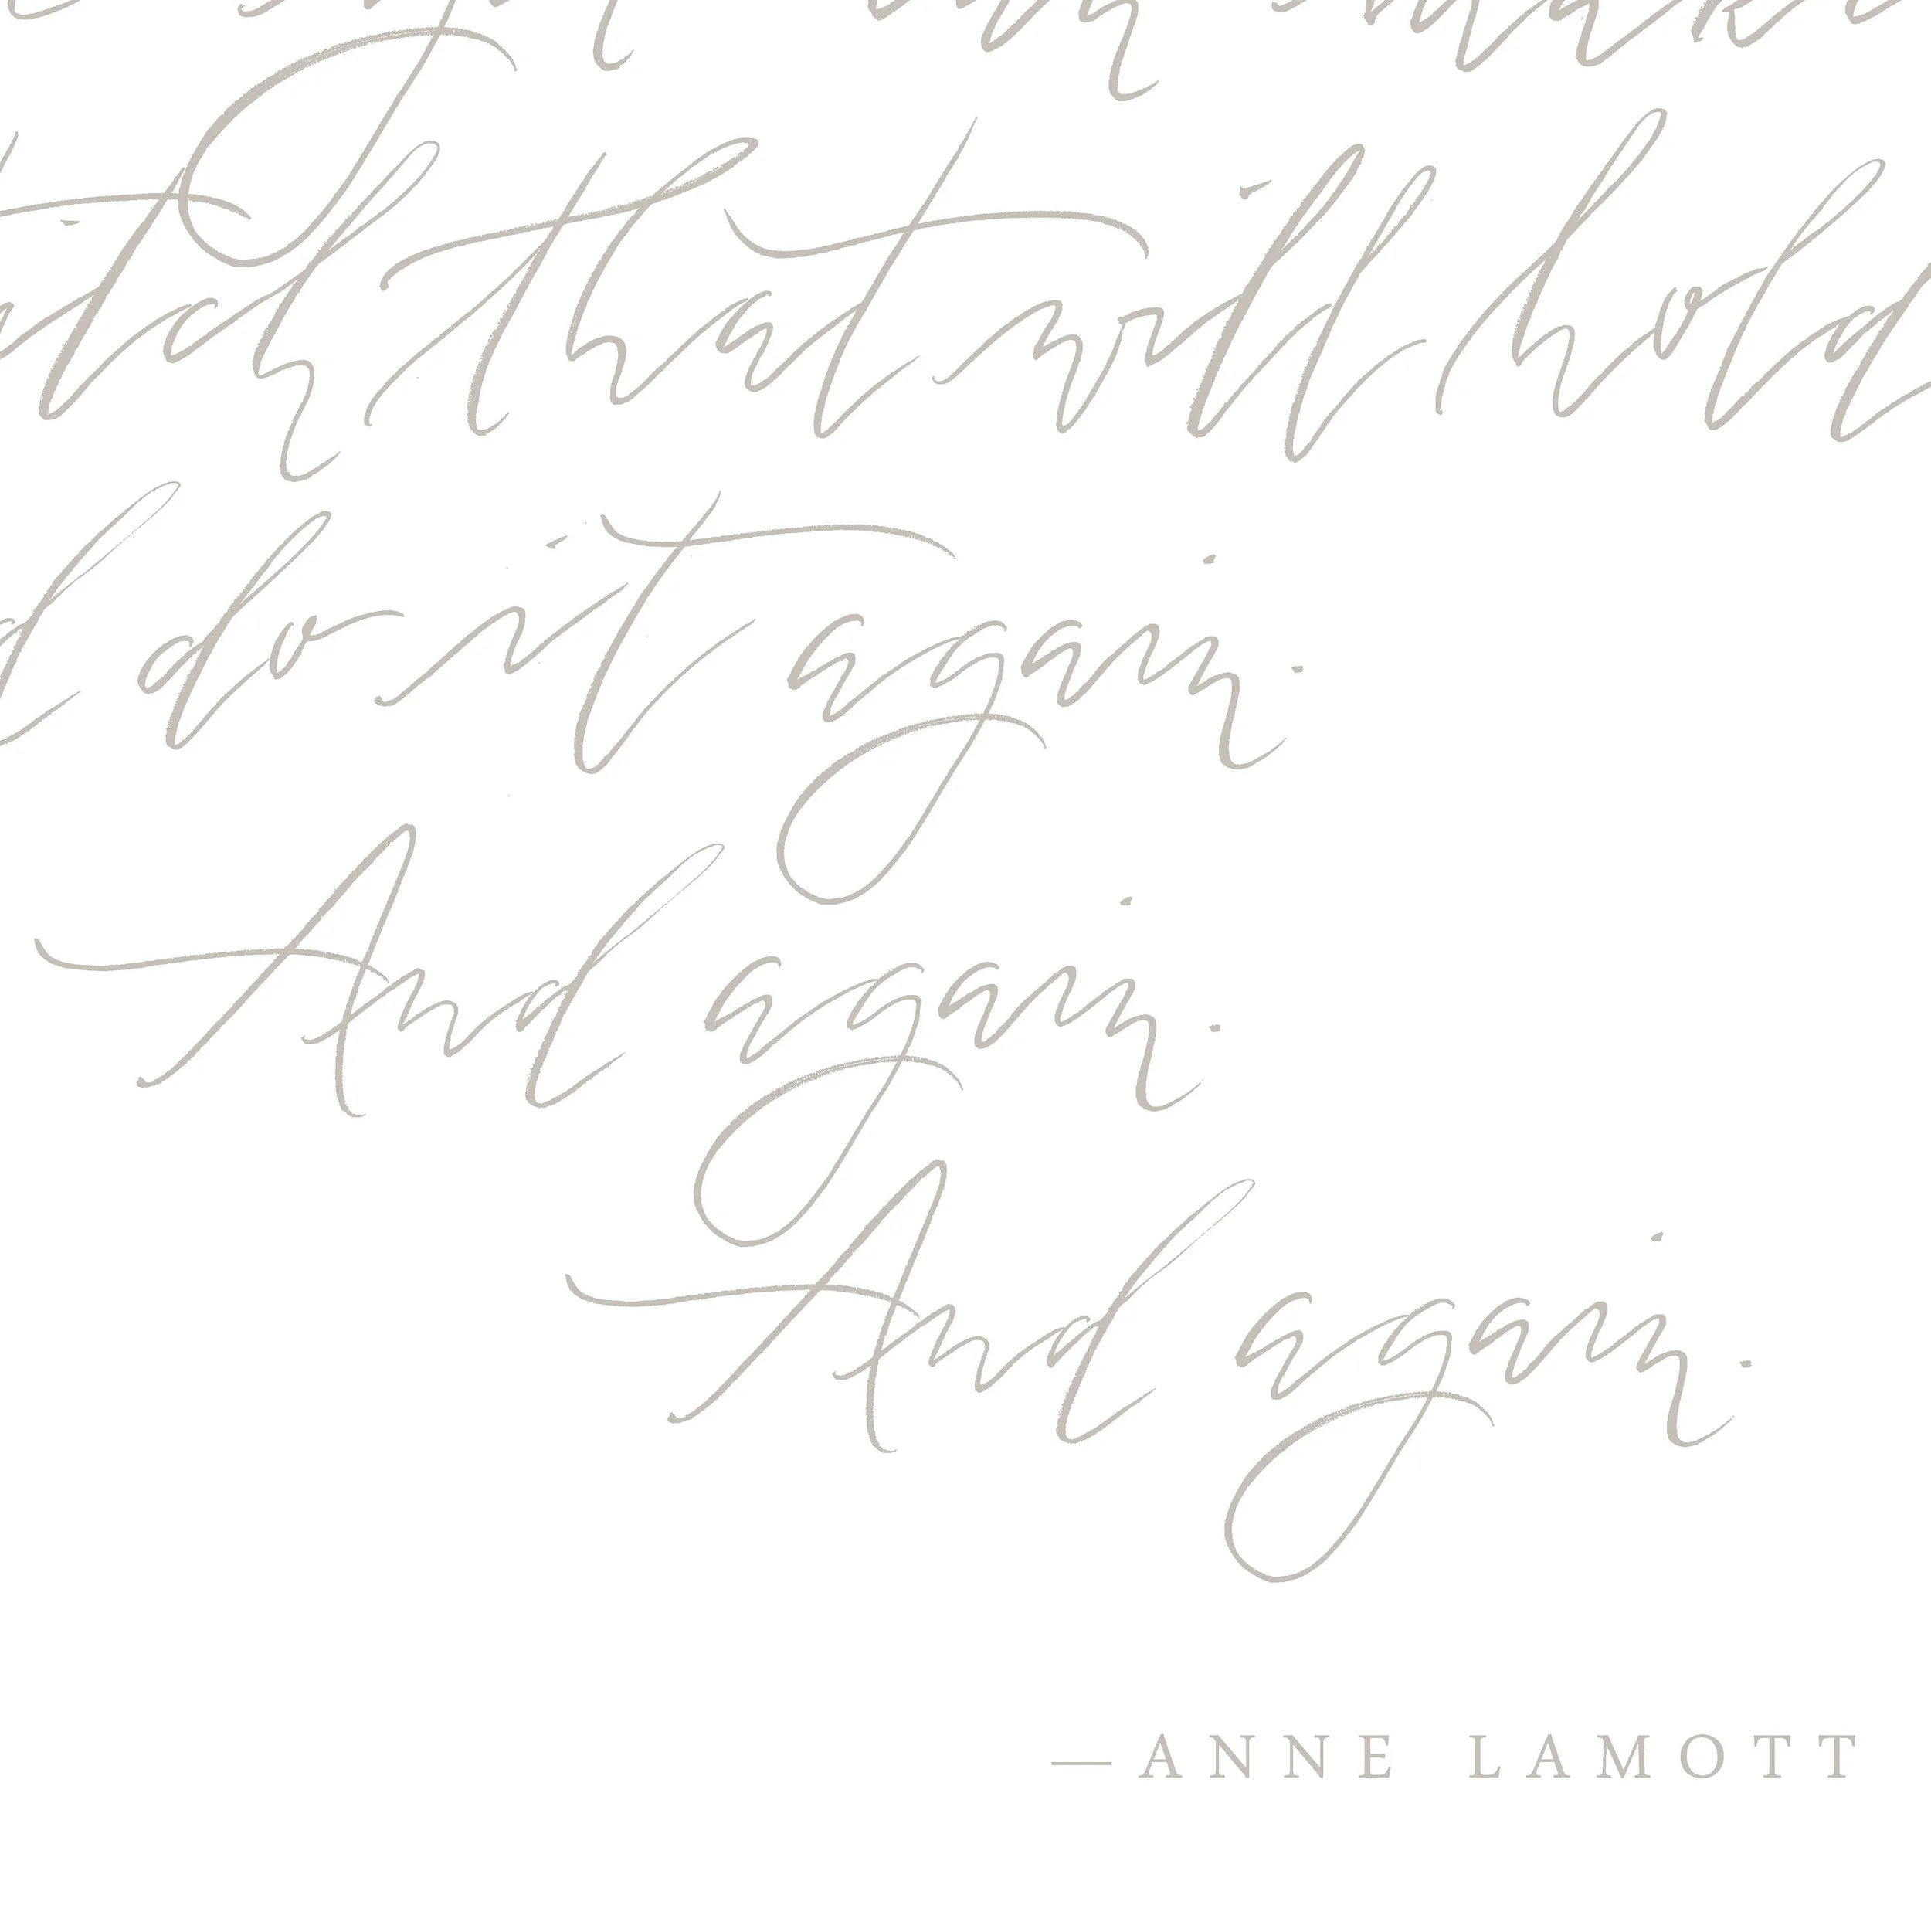 that will hold
do it again.
And again.
And again.
— ANNE LAMOTT